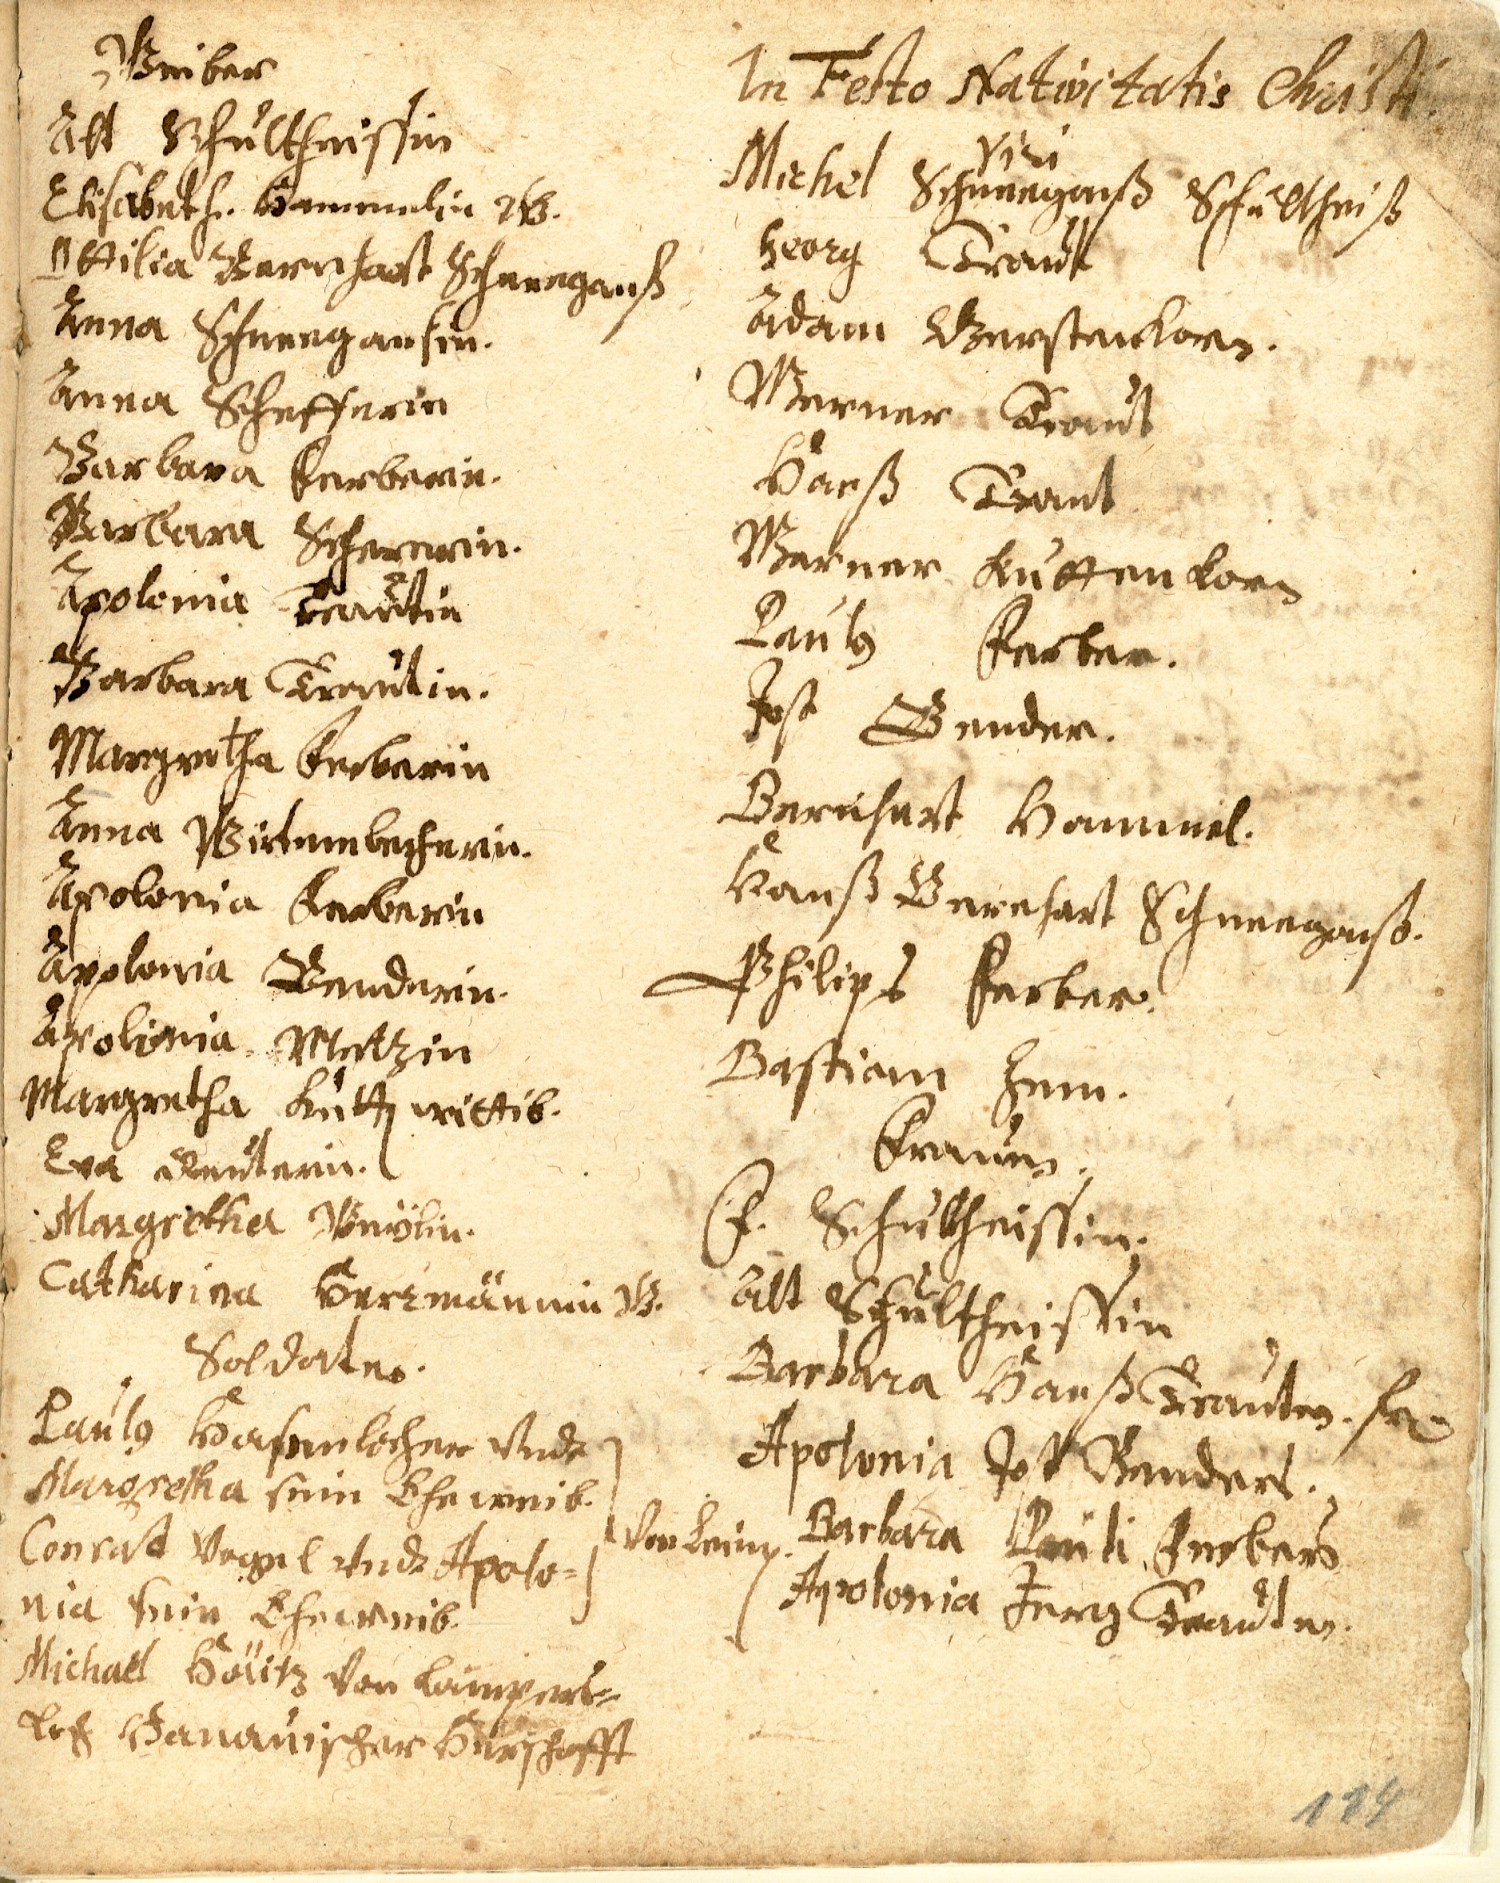 Weiber
Alt Schultheissin
Elisabeth Hammelin W.
Ottilia Bernhart Schneeganß
Anna Schneegansin.
Anna Schefferin
Barbara Ferberin.
Barbara Schererin.
Apolonia Trautin
Barbara Trautin.
Margretha Ferberin
Anna Wirtembecherin.
Apolonia Ferberin
Apolonia Benderin.
Apolonia Metzin
Margretha wittib.
Eva Reuterin.
Margretha
Catharina Herzmännin W.
Soldaten.
Pauls Hasenlocher vnd
Margretha sein Eheweib.
Conrad Vogel vnd Apolo=
nia sein Eheweib.
Michael von Lampert=
Hanauischer Hersschafft
In Festo Nativitatis Christi.
Viri
Michel Schneeganß Schultheiß
Georg Traut
Adam Gerstenkorn.
Werner Traut
Hanß Traut
Werner Kuttenkorn
Pauls Ferber.
Jost Bender.
Bernhart Hammel.
Hanß Bernhart Schneeganß.
Philips Ferber.
Bastian
Frauen.
F. Schultheissin.
Alt Schultheissin
Barbara Hanß Trauten. fr.
Apolonia Jost Benders.
Barbara Pauli Ferbers
Apolonia Jerg Trauten.
184